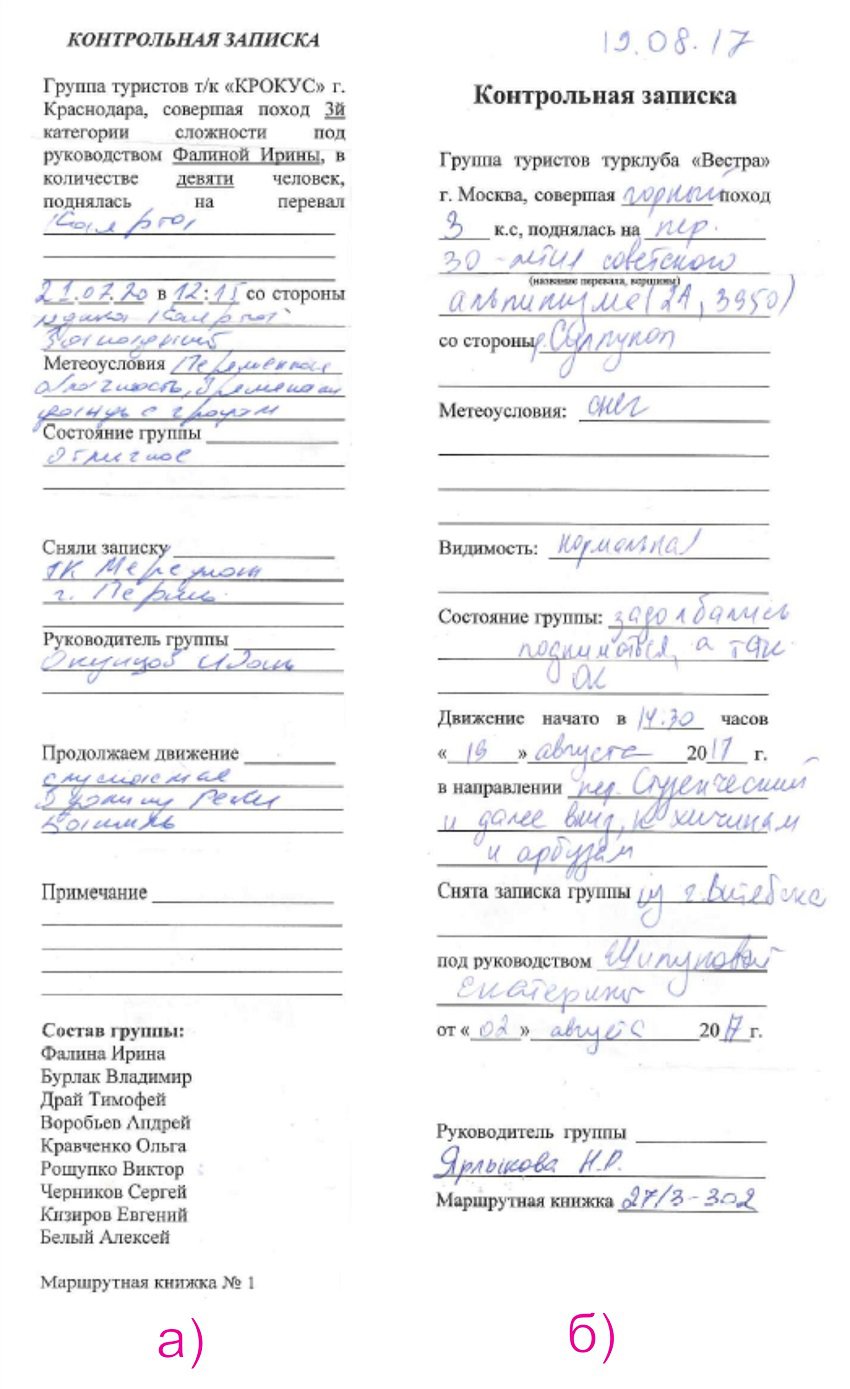 КОНТРОЛЬНАЯ ЗАПИСКА
Группа туристов т/к «КРОКУС» г.
Краснодара, совершая поход 3й
категории сложности под
руководством Фалиной Ирины, в
количестве девяти человек,
поднялась на перевал
21.07.20 в 12:15 со стороны
ледника
Западный
Метеоусловия Переменная
облачность, временами
дождь с градом
Состояние группы
отличное
Сняли записку
ТК Меридиан
г. Пермь
Руководитель группы
Окунцов Иван
Продолжаем движение
спускаемся
в долину реки
Примечание
Состав группы:
Фалина Ирина
Бурлак Владимир
Драй Тимофей
Воробьев Андрей
Кравченко Ольга
Рощупко Виктор
Черников Сергей
Кизиров Евгений
Белый Алексей
Маршрутная книжка № 1
а)
19.08.17
Контрольная записка
Группа туристов турклуба «Вестра»
г. Москва, совершая горный поход
3 к.с, поднялась на пер.
30-летия советского
(название перевала, вершины)
альпинизма (2А, 3950)
со стороны р.
Метеоусловия: снег
Видимость: нормальная
Состояние группы: задолбались
подниматься, а так
ОК
Движение начато в 14.30 часов
« 19 » августа 2017 г.
в направлении пер. Студенческий
и далее вниз, к хичинам
и арбузам
Снята записка группы из г. Витебска
под руководством Шипуновой
Екатерины
от « 02 » августа 2017 г.
Руководитель группы
Ярлыкова Н.Р.
Маршрутная книжка 27/3-302
б)